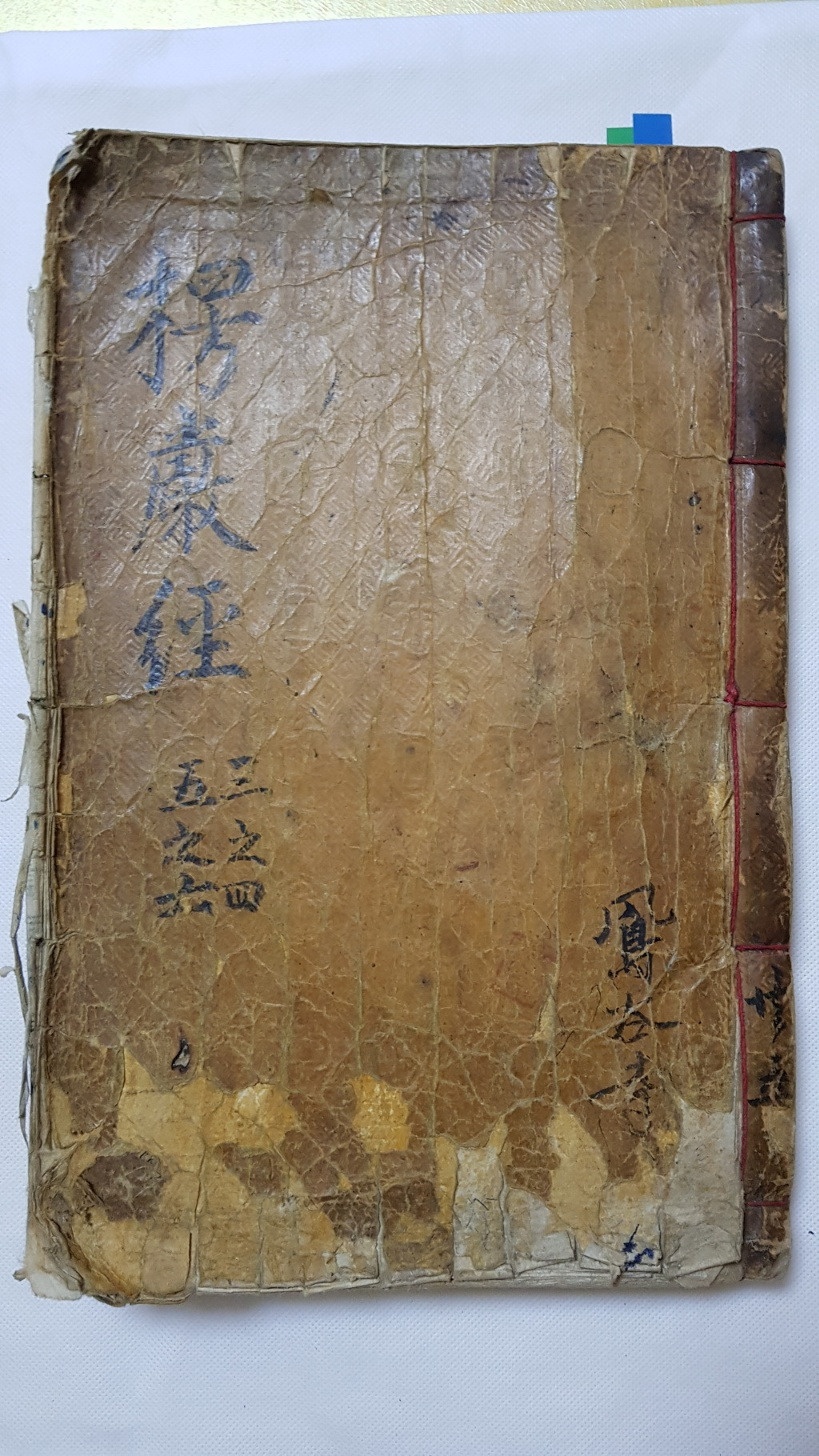 楞嚴經
三之四
五之六
鳳谷